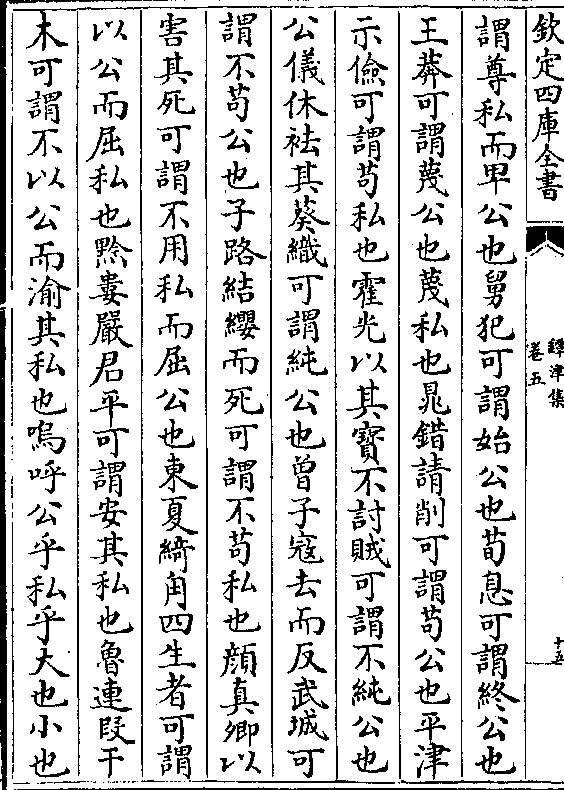 欽定四庫全書
鐔津集
卷五
十五
謂尊私而卑公也舅犯可謂始公也荀息可謂終公也
王莽可謂蔑公也蔑私也晁錯請削可謂苟公也平津
示儉可謂苟私也霍光以其寳不討賊可謂不純公也
公儀休袪其葵織可謂純公也曾子寇去而反武城可
謂不苟公也子路結纓而死可謂不苟私也顔真卿以
害其死可謂不用私而屈公也東夏綺角四生者可謂
以公而屈私也黔婁嚴君平可謂安其私也魯連段干
木可謂不以公而渝其私也嗚呼公乎私乎大也小也